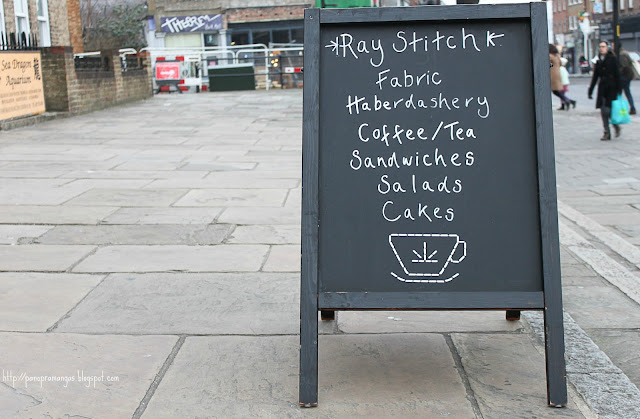 Ray Stitch
Fabric
Haberdashery
Coffee/Tea
Sandwiches
Salads
Cakes
Sea Dragon
Aquarium
http://panopramangas.blogspot.com/